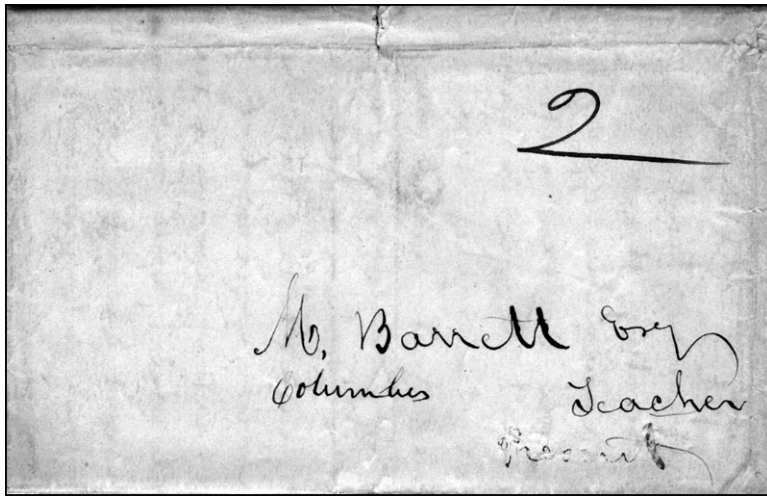 2
M. Barrett Esq
Columbus Teacher
Present